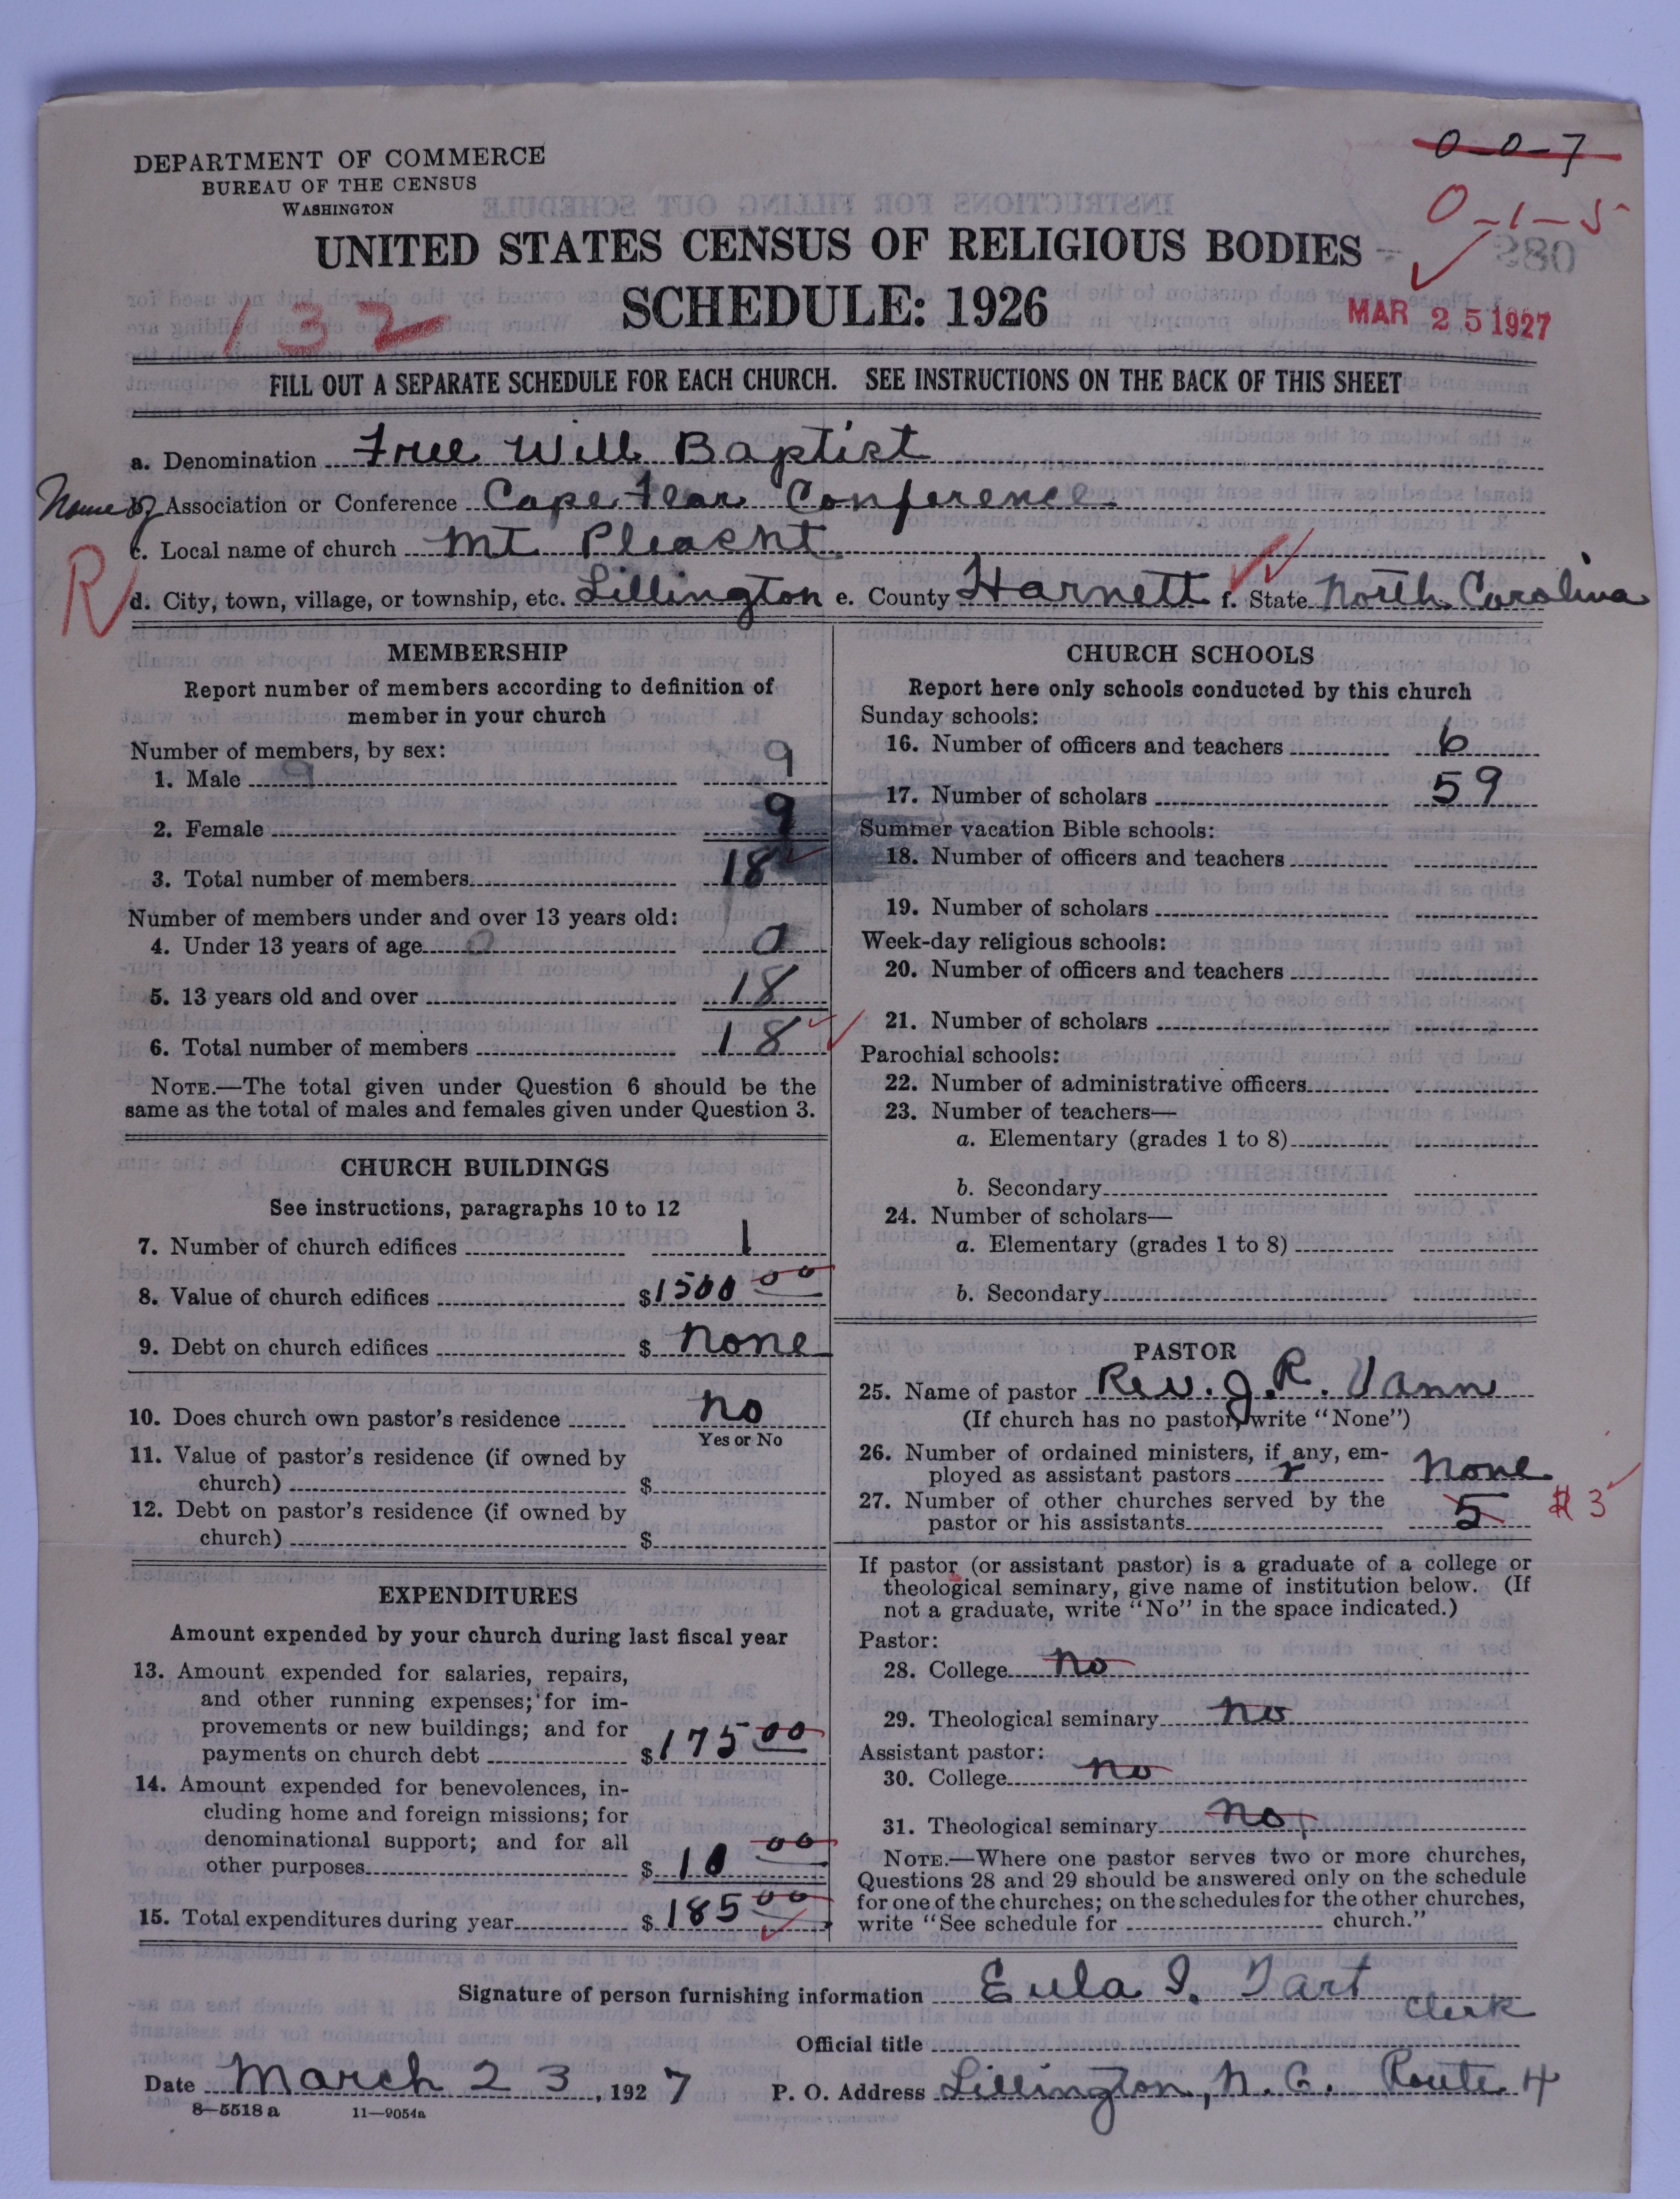 0-0-7
0-1-5
DEPARTMENT OF COMMERCE
BUREAU OF THE CENSUS
WASHINGTON
UNITED STATES CENSUS OF RELIGIOUS BODIES
SCHEDULE: 1926
132
MAR 25 1927
FILL OUT A SEPARATE SCHEDULE FOR EACH CHURCH. SEE INSTRUCTIONS ON THE BACK OF THIS SHEET
a. Denomination Free Will Baptist
Name of Association or Conference Cape Fear Conference
c. Local name of church Mt Pleasnt
R
d. City, town, village, or township, etc. Lillington e. County Harnett f. State North Carolina
MEMBERSHIP
Report number of members according to definition of
member in your church
Number of members, by sex:
1. Male 9 9
2. Female 9
3. Total number of members 18
Number of members under and over 13 years old:
4. Under 13 years of age 0 0
5. 13 years old and over 18
6. Total number of members 18
NOTE.—The total given under Question 6 should be the
same as the total of males and females given under Question 3.
CHURCH BUILDINGS
See instructions, paragraphs 10 to 12
7. Number of church edifices 1
8. Value of church edifices $1500 00
9. Debt on church edifices $ none
10. Does church own pastor's residence no
Yes or No
11. Value of pastor's residence (if owned by
church) $
12. Debt on pastor's residence (if owned by
church) $
EXPENDITURES
Amount expended by your church during last fiscal year
13. Amount expended for salaries, repairs,
and other running expenses; for im-
provements or new buildings; and for
payments on church debt $175 00
14. Amount expended for benevolences, in-
cluding home and foreign missions; for
denominational support; and for all
other purposes $ 10 00
15. Total expenditures during year $185 00
CHURCH SCHOOLS
Report here only schools conducted by this church
Sunday schools:
16. Number of officers and teachers 6
17. Number of scholars 59
Summer vacation Bible schools:
18. Number of officers and teachers
19. Number of scholars
Week-day religious schools:
20. Number of officers and teachers
21. Number of scholars
Parochial schools:
22. Number of administrative officers
23. Number of teachers—
a. Elementary (grades 1 to 8)
b. Secondary
24. Number of scholars—
a. Elementary (grades 1 to 8)
b. Secondary
PASTOR
25. Name of pastor Rev. J. R. Vann
(If church has no pastor, write "None")
26. Number of ordained ministers, if any, em-
ployed as assistant pastors none
27. Number of other churches served by the
pastor or his assistants 5 3
If pastor (or assistant pastor) is a graduate of a college or
theological seminary, give name of institution below. (If
not a graduate, write "No" in the space indicated.)
Pastor:
28. College no
29. Theological seminary no
Assistant pastor:
30. College no
31. Theological seminary no
NOTE.—Where one pastor serves two or more churches,
Questions 28 and 29 should be answered only on the schedule
for one of the churches; on the schedules for the other churches,
write "See schedule for church."
Signature of person furnishing information Eula I. Tart
Official title Clerk
Date March 23, 1927 P. O. Address Lillington, N. C. Route 4
8—5518 a 11—9054a